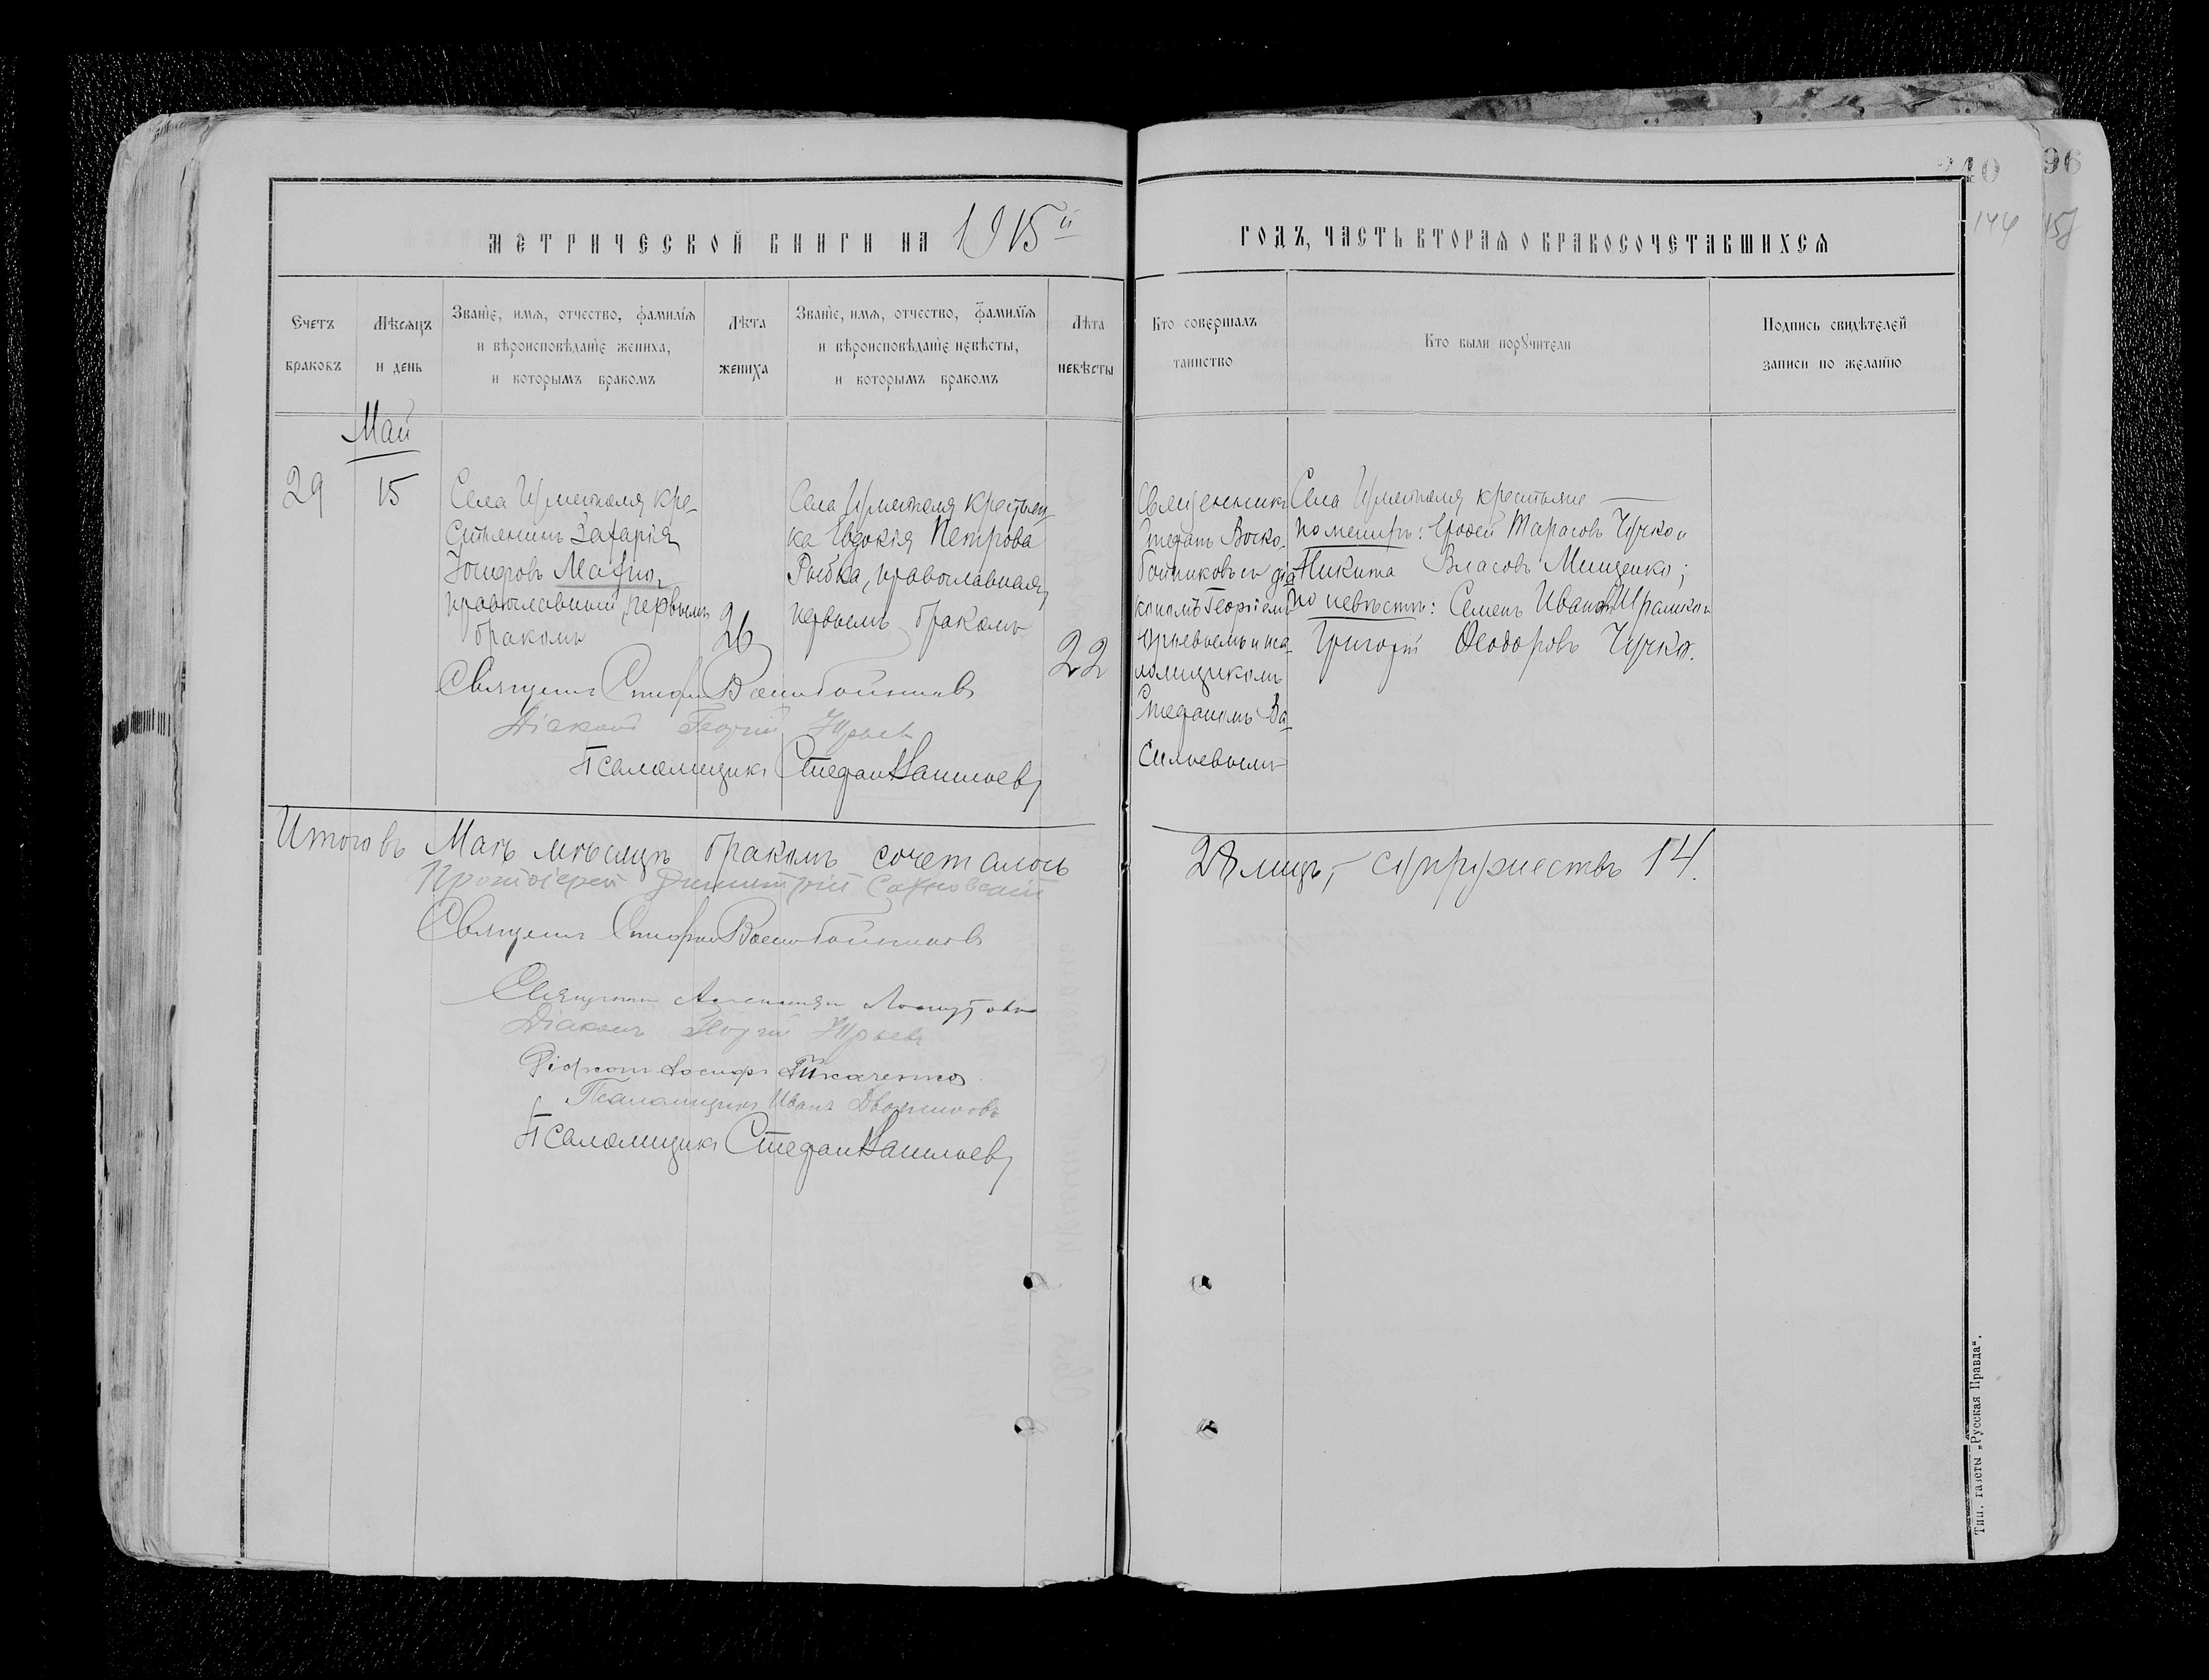 240
96
144
157
МЕТРИЧЕСКОЙ КНИГИ НА 1915й
ГОДЪ, ЧАСТЬ ВТОРАЯ О БРАКОСОЧЕТАВШИХСЯ
Счетъ браковъ
Мѣсяцъ и день
Званіе, имя, отчество, фамилія
и вѣроисповѣданіе жениха,
и которымъ бракомъ
Лѣта жениха
Званіе, имя, отчество, фамилія
и вѣроисповѣданіе невѣсты,
и которымъ бракомъ
Лѣта невѣсты
Кто совершалъ
таинство
Кто были поручители
Подпись свидѣтелей
записи по желанію
Май
29
15
Села кре-
стьянинъ Захарія
Іосифовъ
православный, первымъ
бракомъ
26
Села крестьян-
ка Евдокія Петрова
Рыбка, православная,
первымъ бракомъ
22
Священникъ
Стефанъ Воско-
бойниковъ съ діа-
кономъ Георгіемъ
Юрьевымъ и пса-
ломщикомъ
Стефаномъ Ва-
сильевымъ
Села крестьяне
по женихѣ: Тарасовъ Чучко и
Никита Власовъ Мищенко;
по невѣстѣ: Семенъ Ивановъ и
Григорій Ѳеодоровъ Чучко.
Священникъ Стефанъ Воскобойниковъ
Діаконъ Георгій Юрьевъ
Псаломщикъ Стефанъ Васильевъ
Итого въ Маѣ мѣсяцѣ бракомъ сочеталось
28 лицъ, – супружествъ 14.
Протоіерей Димитрій
Священникъ Стефанъ Воскобойниковъ
Священникъ
Діаконъ Георгій Юрьевъ
Діаконъ Іосифъ Ткаченко
Псаломщикъ Иванъ
Псаломщикъ Стефанъ Васильевъ
Тип. газеты „Русская Правда“.